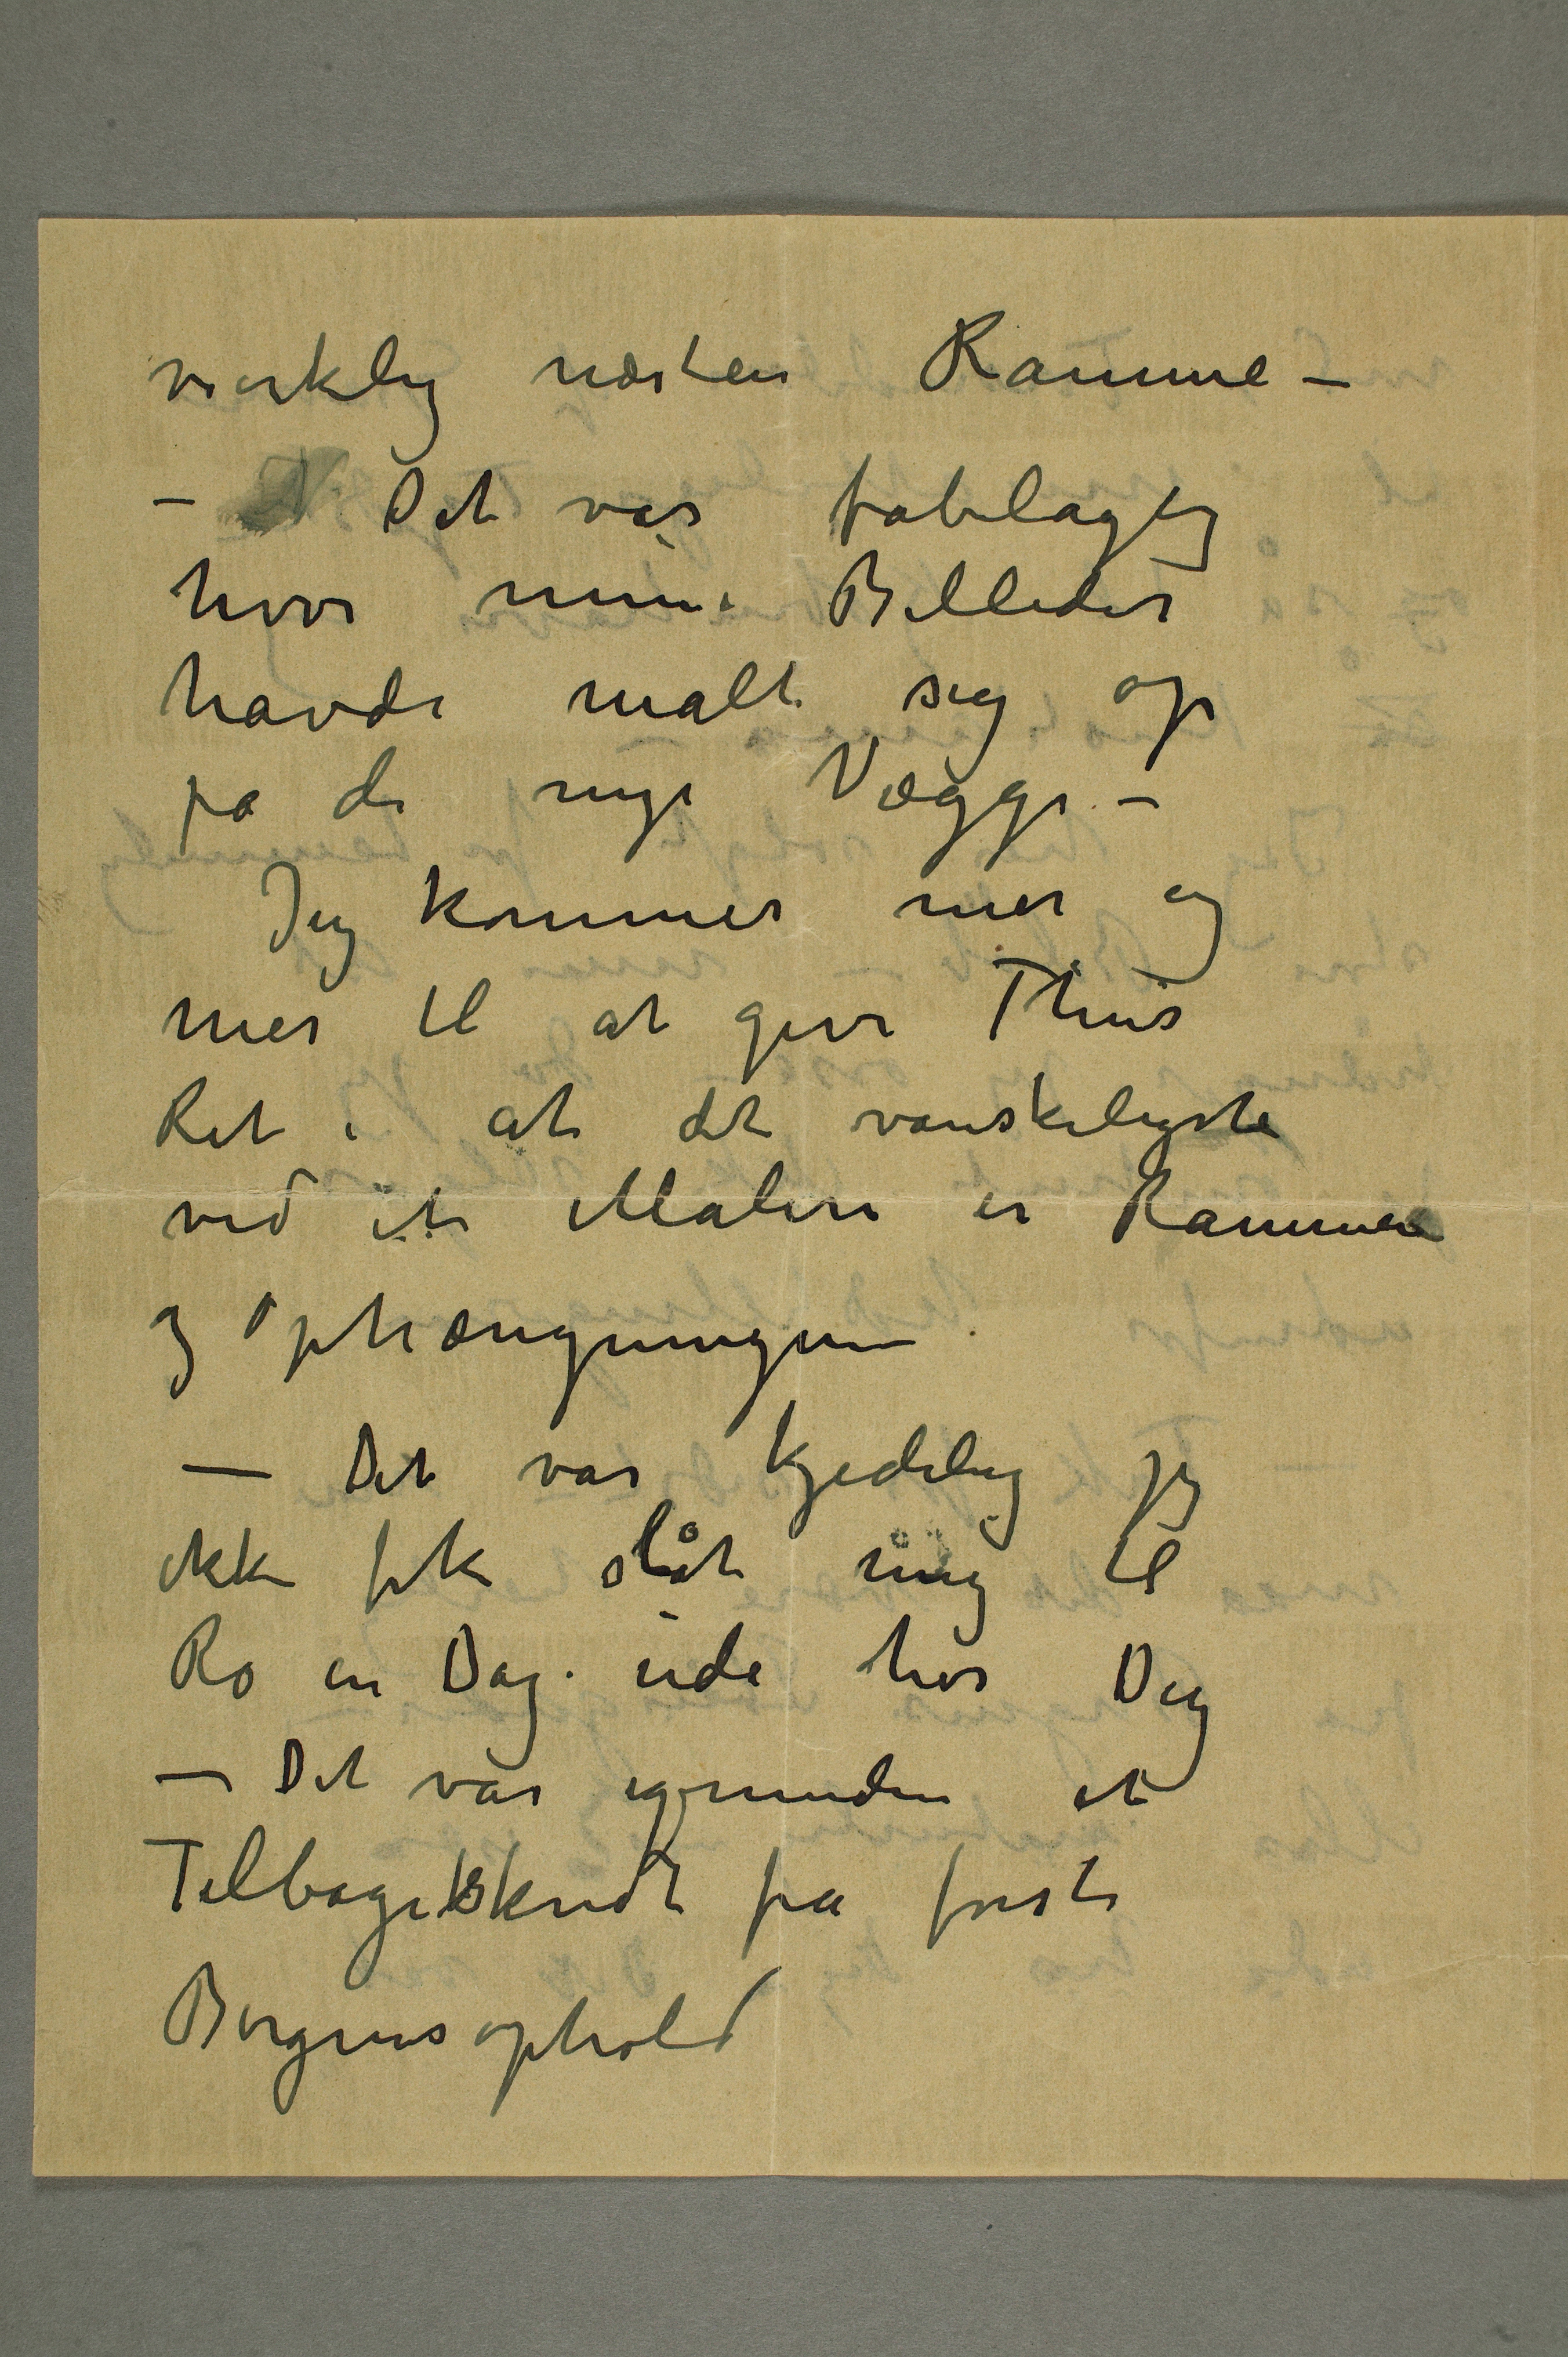 virkelig næsten Ramme –
– Det var fabelagtig
hvor mine Billeder
havde malt sig op
på de nye Vægge. –
Jeg kommer mer og
mer til at give Thiis
Ret i at det vanskeligste
ved et Maleri er Rammen
og Ophængningen
– Det var kjedelig jeg
ikke fik slåt mig til
Ro en Dag ude hos Dig
– Det var igrunden et
Tilbageskridt fra første
Bergensophold